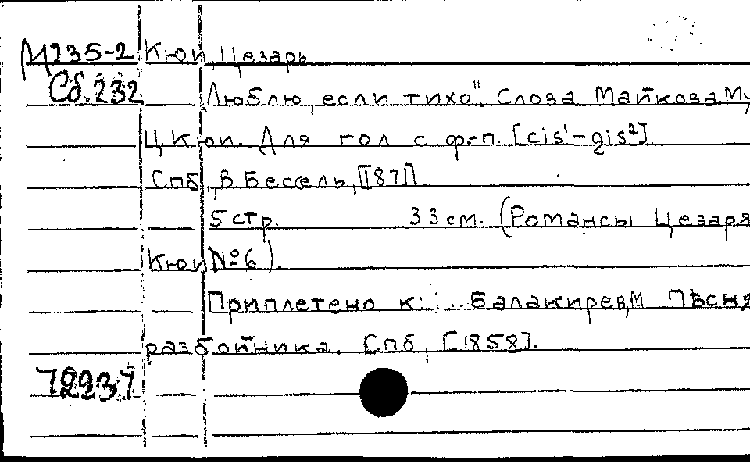 М235-2 Кюи, Цезарь
Сб.232 Люблю, если тихо". Слова Майкова М,
Ц Кюи. Для гол с ф-п. [cis'-gis²]
Спб, В Бессель, [187]
5 стр. 33 см. (Романсы Цезаря
Кюи №6).
Приплетено к: ... Балакирев, М Пѣсня
разбойника. Спб, [1858].
72237